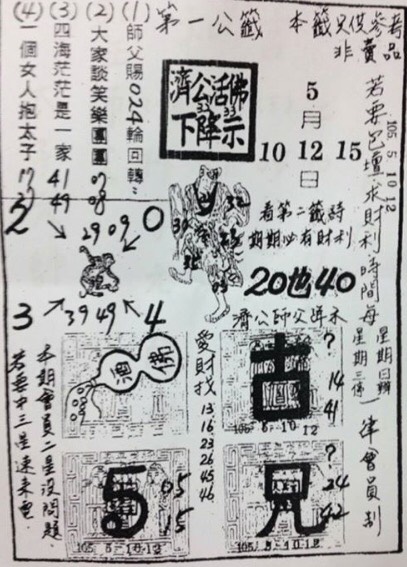 第一公籤
本籤只供參考
非賣品
(1)師父賜024輪回轉
(2)大家談笑樂團團
07
08
(3)四海茫茫是一家
41
49
(4)一個女人抱太子
17
濟公活佛
下降示
5月
10 12 15
日
看第二籤詩
期期必有財利
20也40
濟公師父降禾
2
0
29 09
39 49
3
4
32
愛財找
13
16
23
26
45
46
古
?
14
41
105-5-10.12
5
05
15
105. 5-10-12
兄
?
24
42
105. 5-10-12
105 5 10 12
若要巴壇求財利時間每
星期日辦
星期三停
一律會員制
本期會員二星沒問題.
若要中三星速來電.